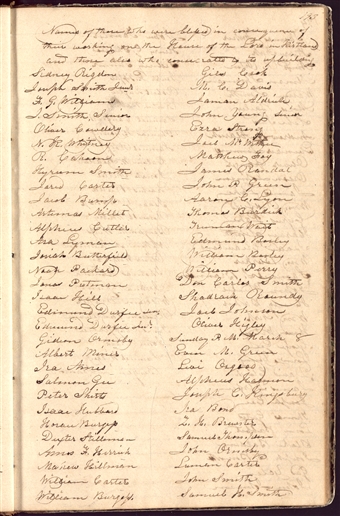 Names of those who were blessed in consequence of
their working on the House of the Lord in Kirtland
and those also who consecrated to its upbuilding
Sidney Rigdon
Joseph Smith Jun
F. G. Williams
J. Smith Senior
Oliver Cowdery
N. K. Whitney
R. Cahoon
Hyrum Smith
Jared Carter
Jacob Bump
Artemas Millet
Alpheus Cutler
Asa Lyman
Josiah Butterfield
Noah Packard
Jonas Putnam
Isaac Hill
Edmund Durfee Sen
Edmund Durfee Jun.
Gideon Ormsby
Albert Miner
Ira Ames
Salmon Gee
Peter Shirts
Isaac Hubbard
Horace Burgess
Dexter Stillman
Amos F. Herrick
Mayhew Hillman
William Carter
William Burgess
Giles Cook
M. C. Davis
Jaman Aldrich
John Young Senior
Ezra Strong
Joel McWithy
Matthew Foy
James Randal
John P. Green
Aaron E. Lyon
Thomas Burdick
Truman Wait
Edmund Bosley
William Bosley
William Perry
Don Carlos Smith
Shadrach Roundy
Joel Johnson
Oliver Higley
Sunday P. M. March 8
Evan M. Green
Levi Osgood
Alpheus Harmon
Joseph C. Kingsbury
Ira Bond
Z. H. Brewster
Samuel Thompson
John Ormsby
Luman Carter
John Smith
Samuel H. Smith